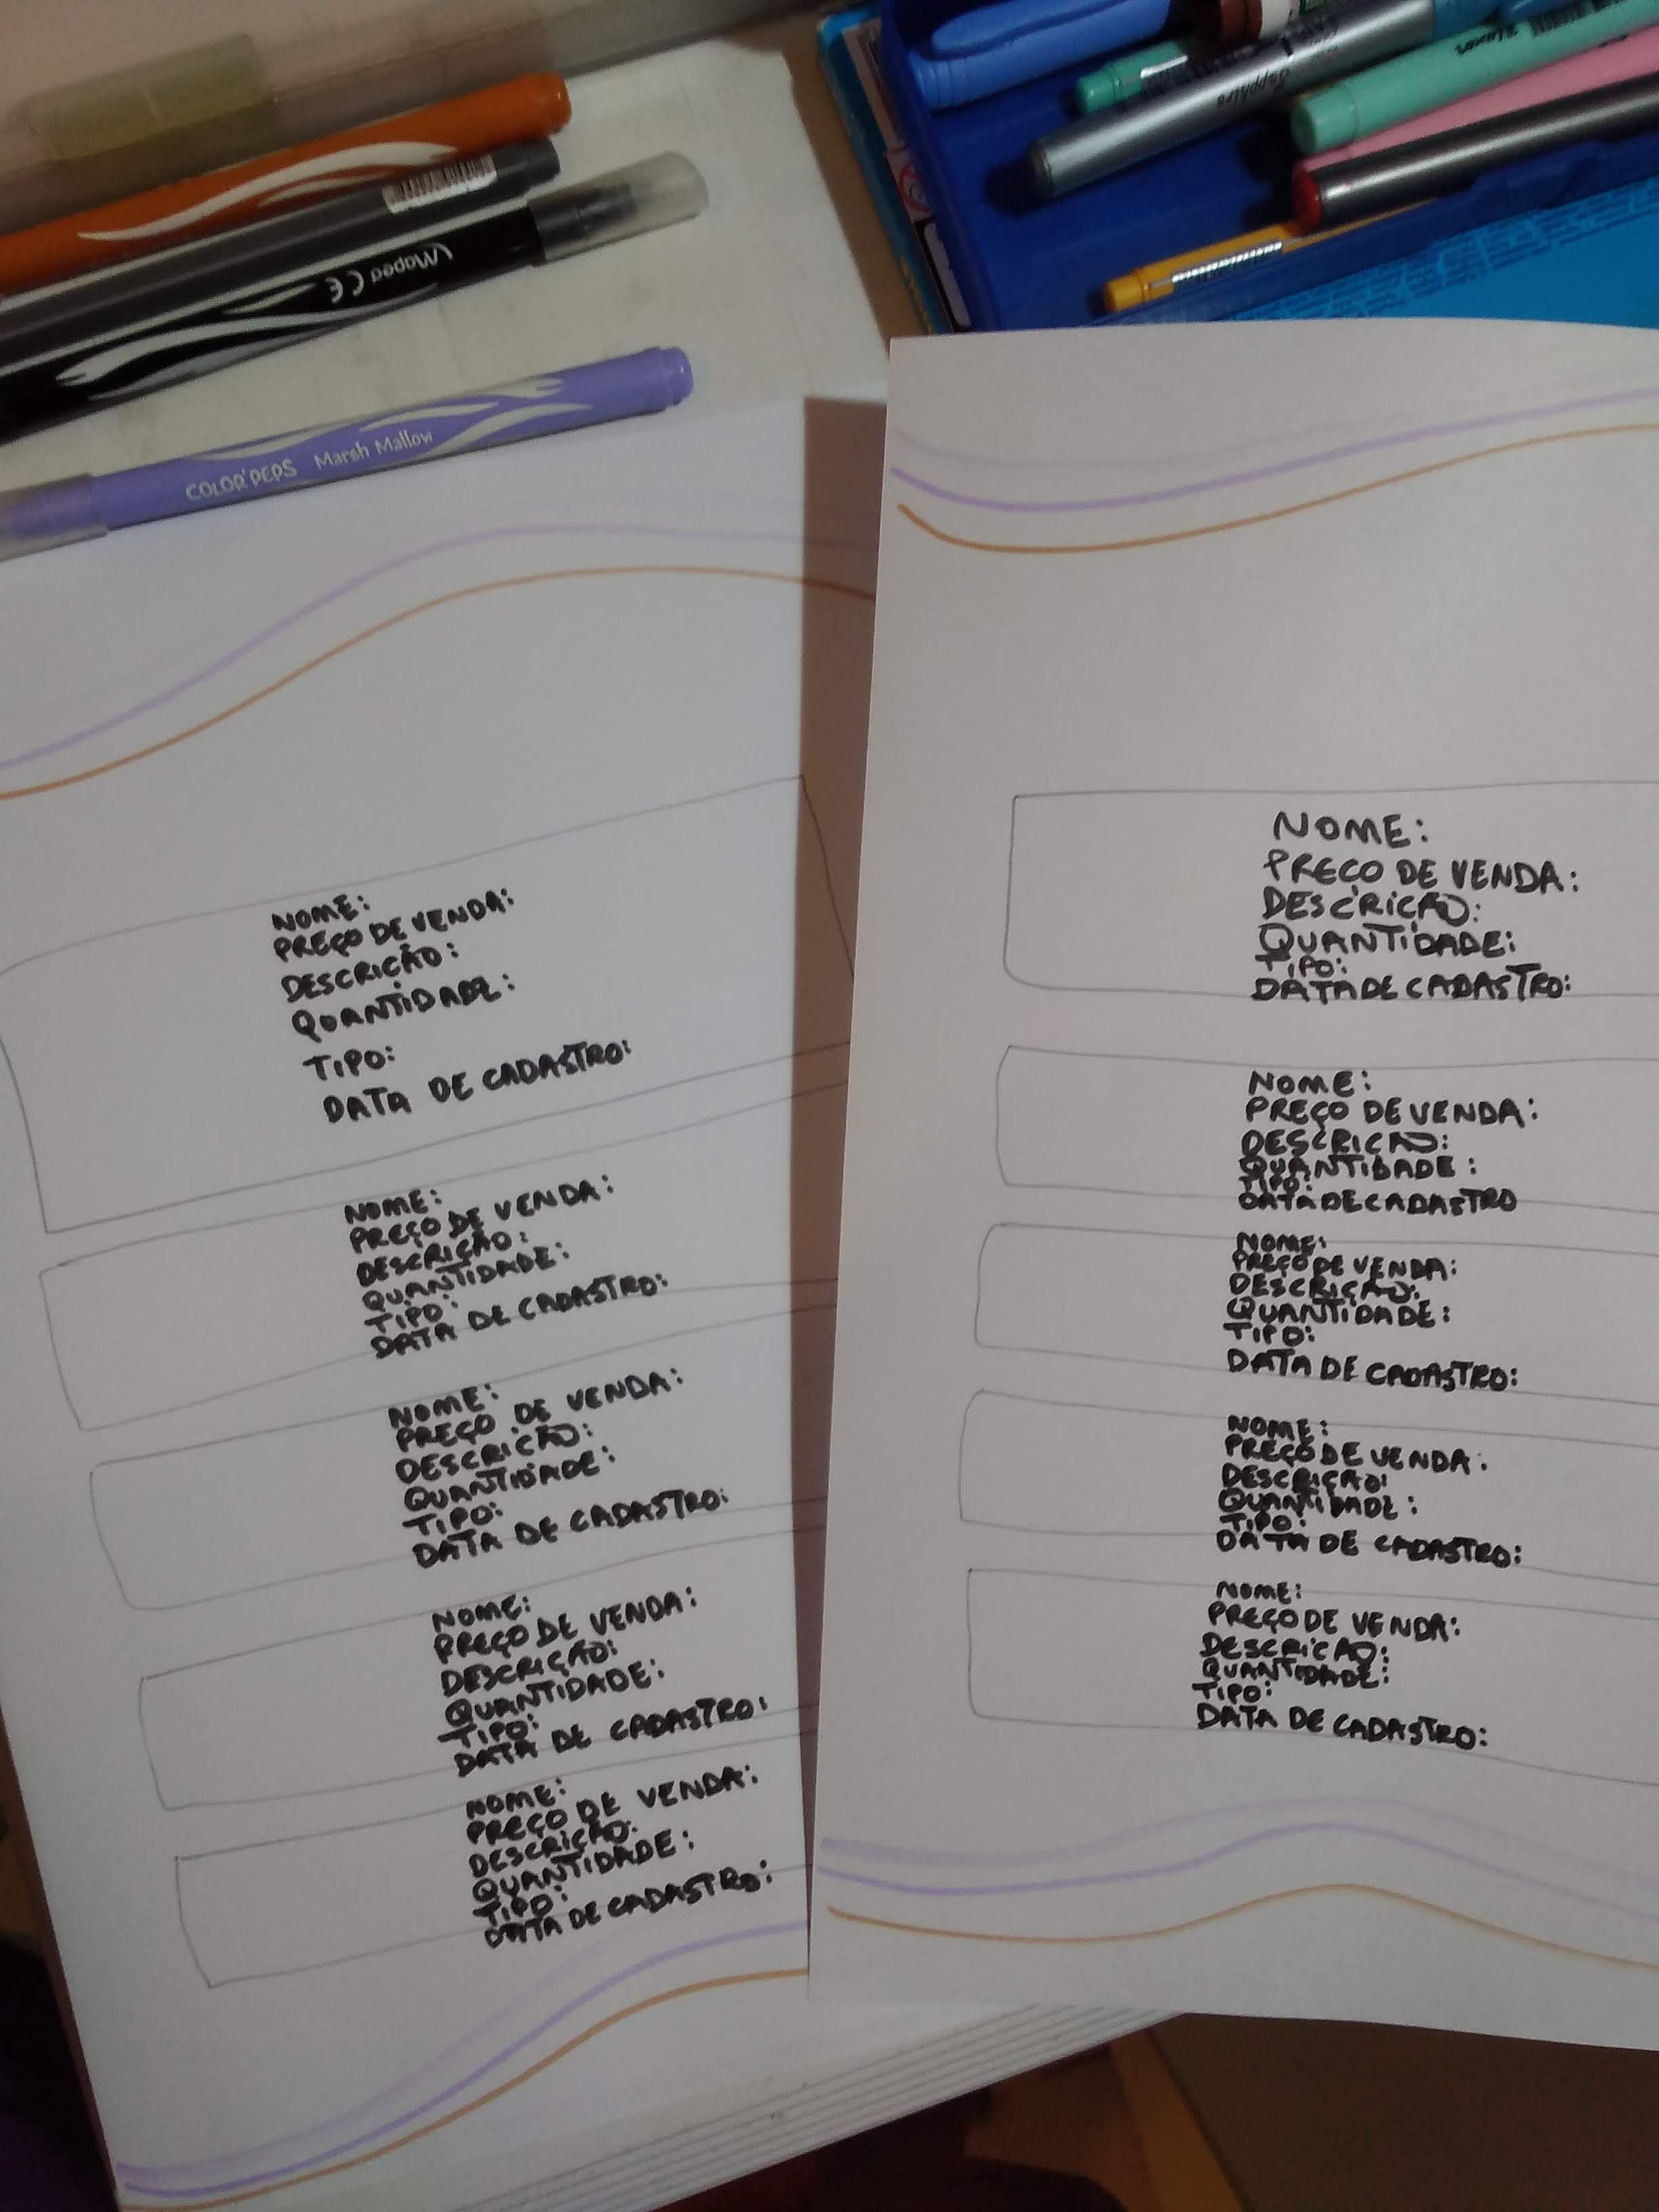 Sapphire
Maped CE
COLOR'PEPS Marsh Mallow
NOME:
PREÇO DE VENDA:
DESCRIÇÃO:
QUANTIDADE:
TIPO:
DATA DE CADASTRO:
NOME:
PREÇO DE VENDA:
DESCRIÇÃO:
QUANTIDADE:
TIPO:
DATA DE CADASTRO:
NOME:
PREÇO DE VENDA:
DESCRIÇÃO:
QUANTIDADE:
TIPO:
DATA DE CADASTRO:
NOME:
PREÇO DE VENDA:
DESCRIÇÃO:
QUANTIDADE:
TIPO:
DATA DE CADASTRO:
NOME:
PREÇO DE VENDA:
DESCRIÇÃO:
QUANTIDADE:
TIPO:
DATA DE CADASTRO:
NOME:
PREÇO DE VENDA:
DESCRIÇÃO:
QUANTIDADE:
TIPO:
DATA DE CADASTRO:
NOME:
PREÇO DE VENDA:
DESCRIÇÃO:
QUANTIDADE:
TIPO:
DATA DE CADASTRO
NOME:
PREÇO DE VENDA:
DESCRIÇÃO:
QUANTIDADE:
TIPO:
DATA DE CADASTRO:
NOME:
PREÇO DE VENDA:
DESCRIÇÃO:
QUANTIDADE:
TIPO:
DATA DE CADASTRO:
NOME:
PREÇO DE VENDA:
DESCRIÇÃO:
QUANTIDADE:
TIPO:
DATA DE CADASTRO: